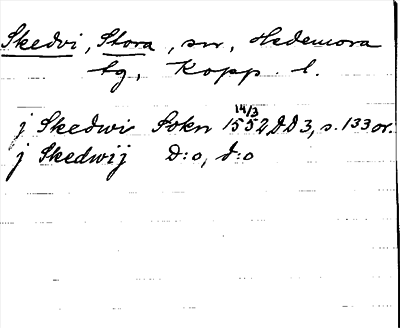 Skedvi, Stora, sn, Hedemora
tg, Kopp. l.
14/3
j Skedwi Sokn 1552 DD3, s. 133 or.
j Skedwij D:o, d:o